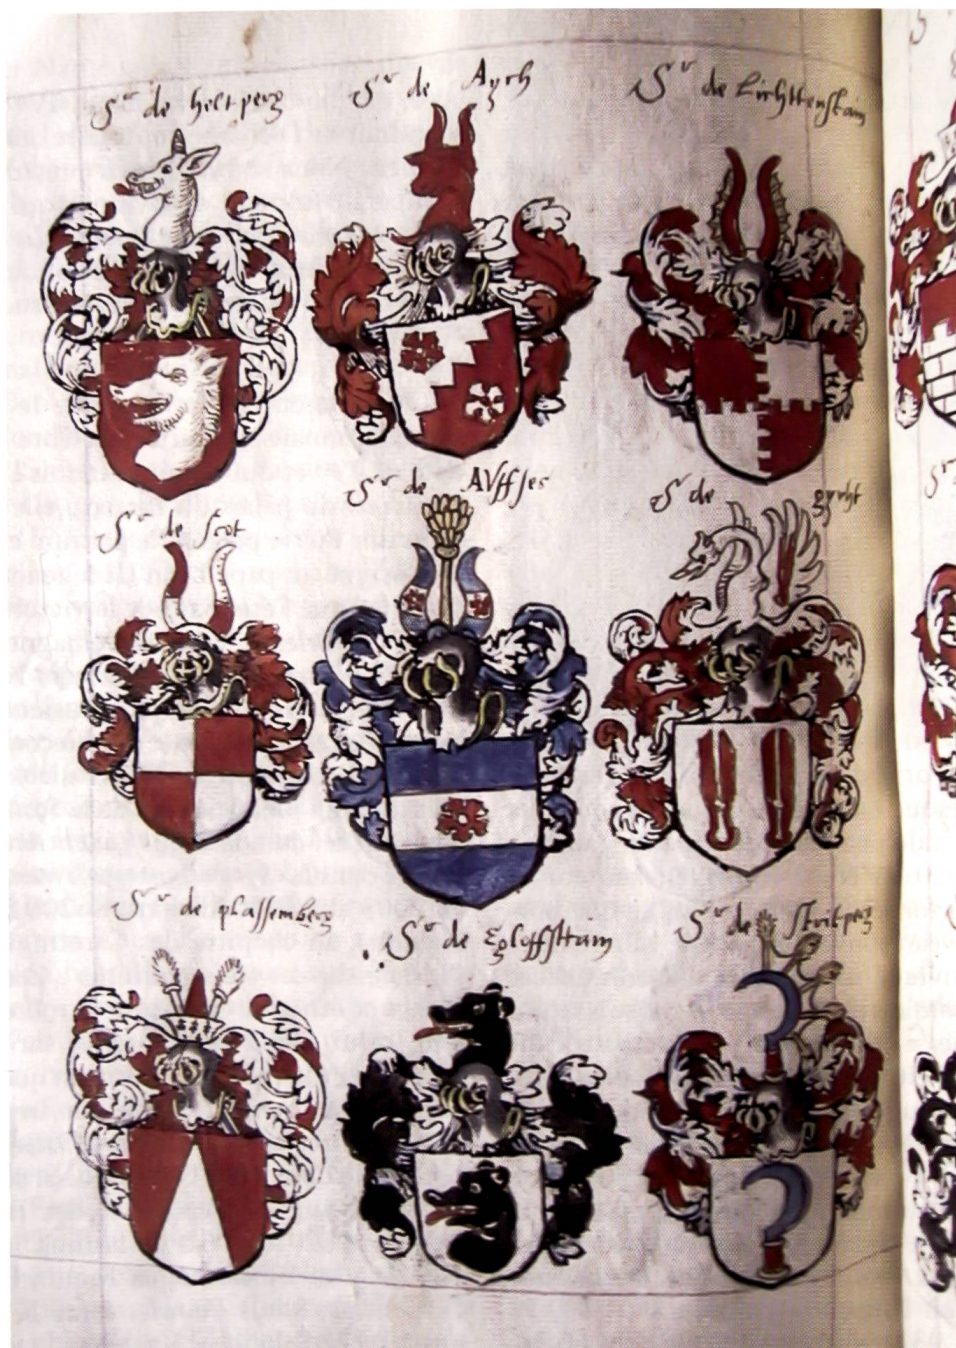 Sr de heltperg
Sr de Aych
Sr de Lichttenstain
Sr de scot
Sr de AVffses
Sr de
Sr de plassemberg
Sr de Egloffstain
Sr de stritperg